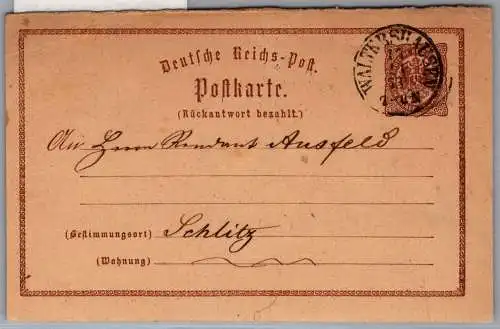 WALTERSHAUSEN
Deutsche Reichs-Post.
Postkarte.
(Rückantwort bezahlt.)
An Herrn Rendant Ausfeld
(Bestimmungsort) Schlitz
(Wohnung)